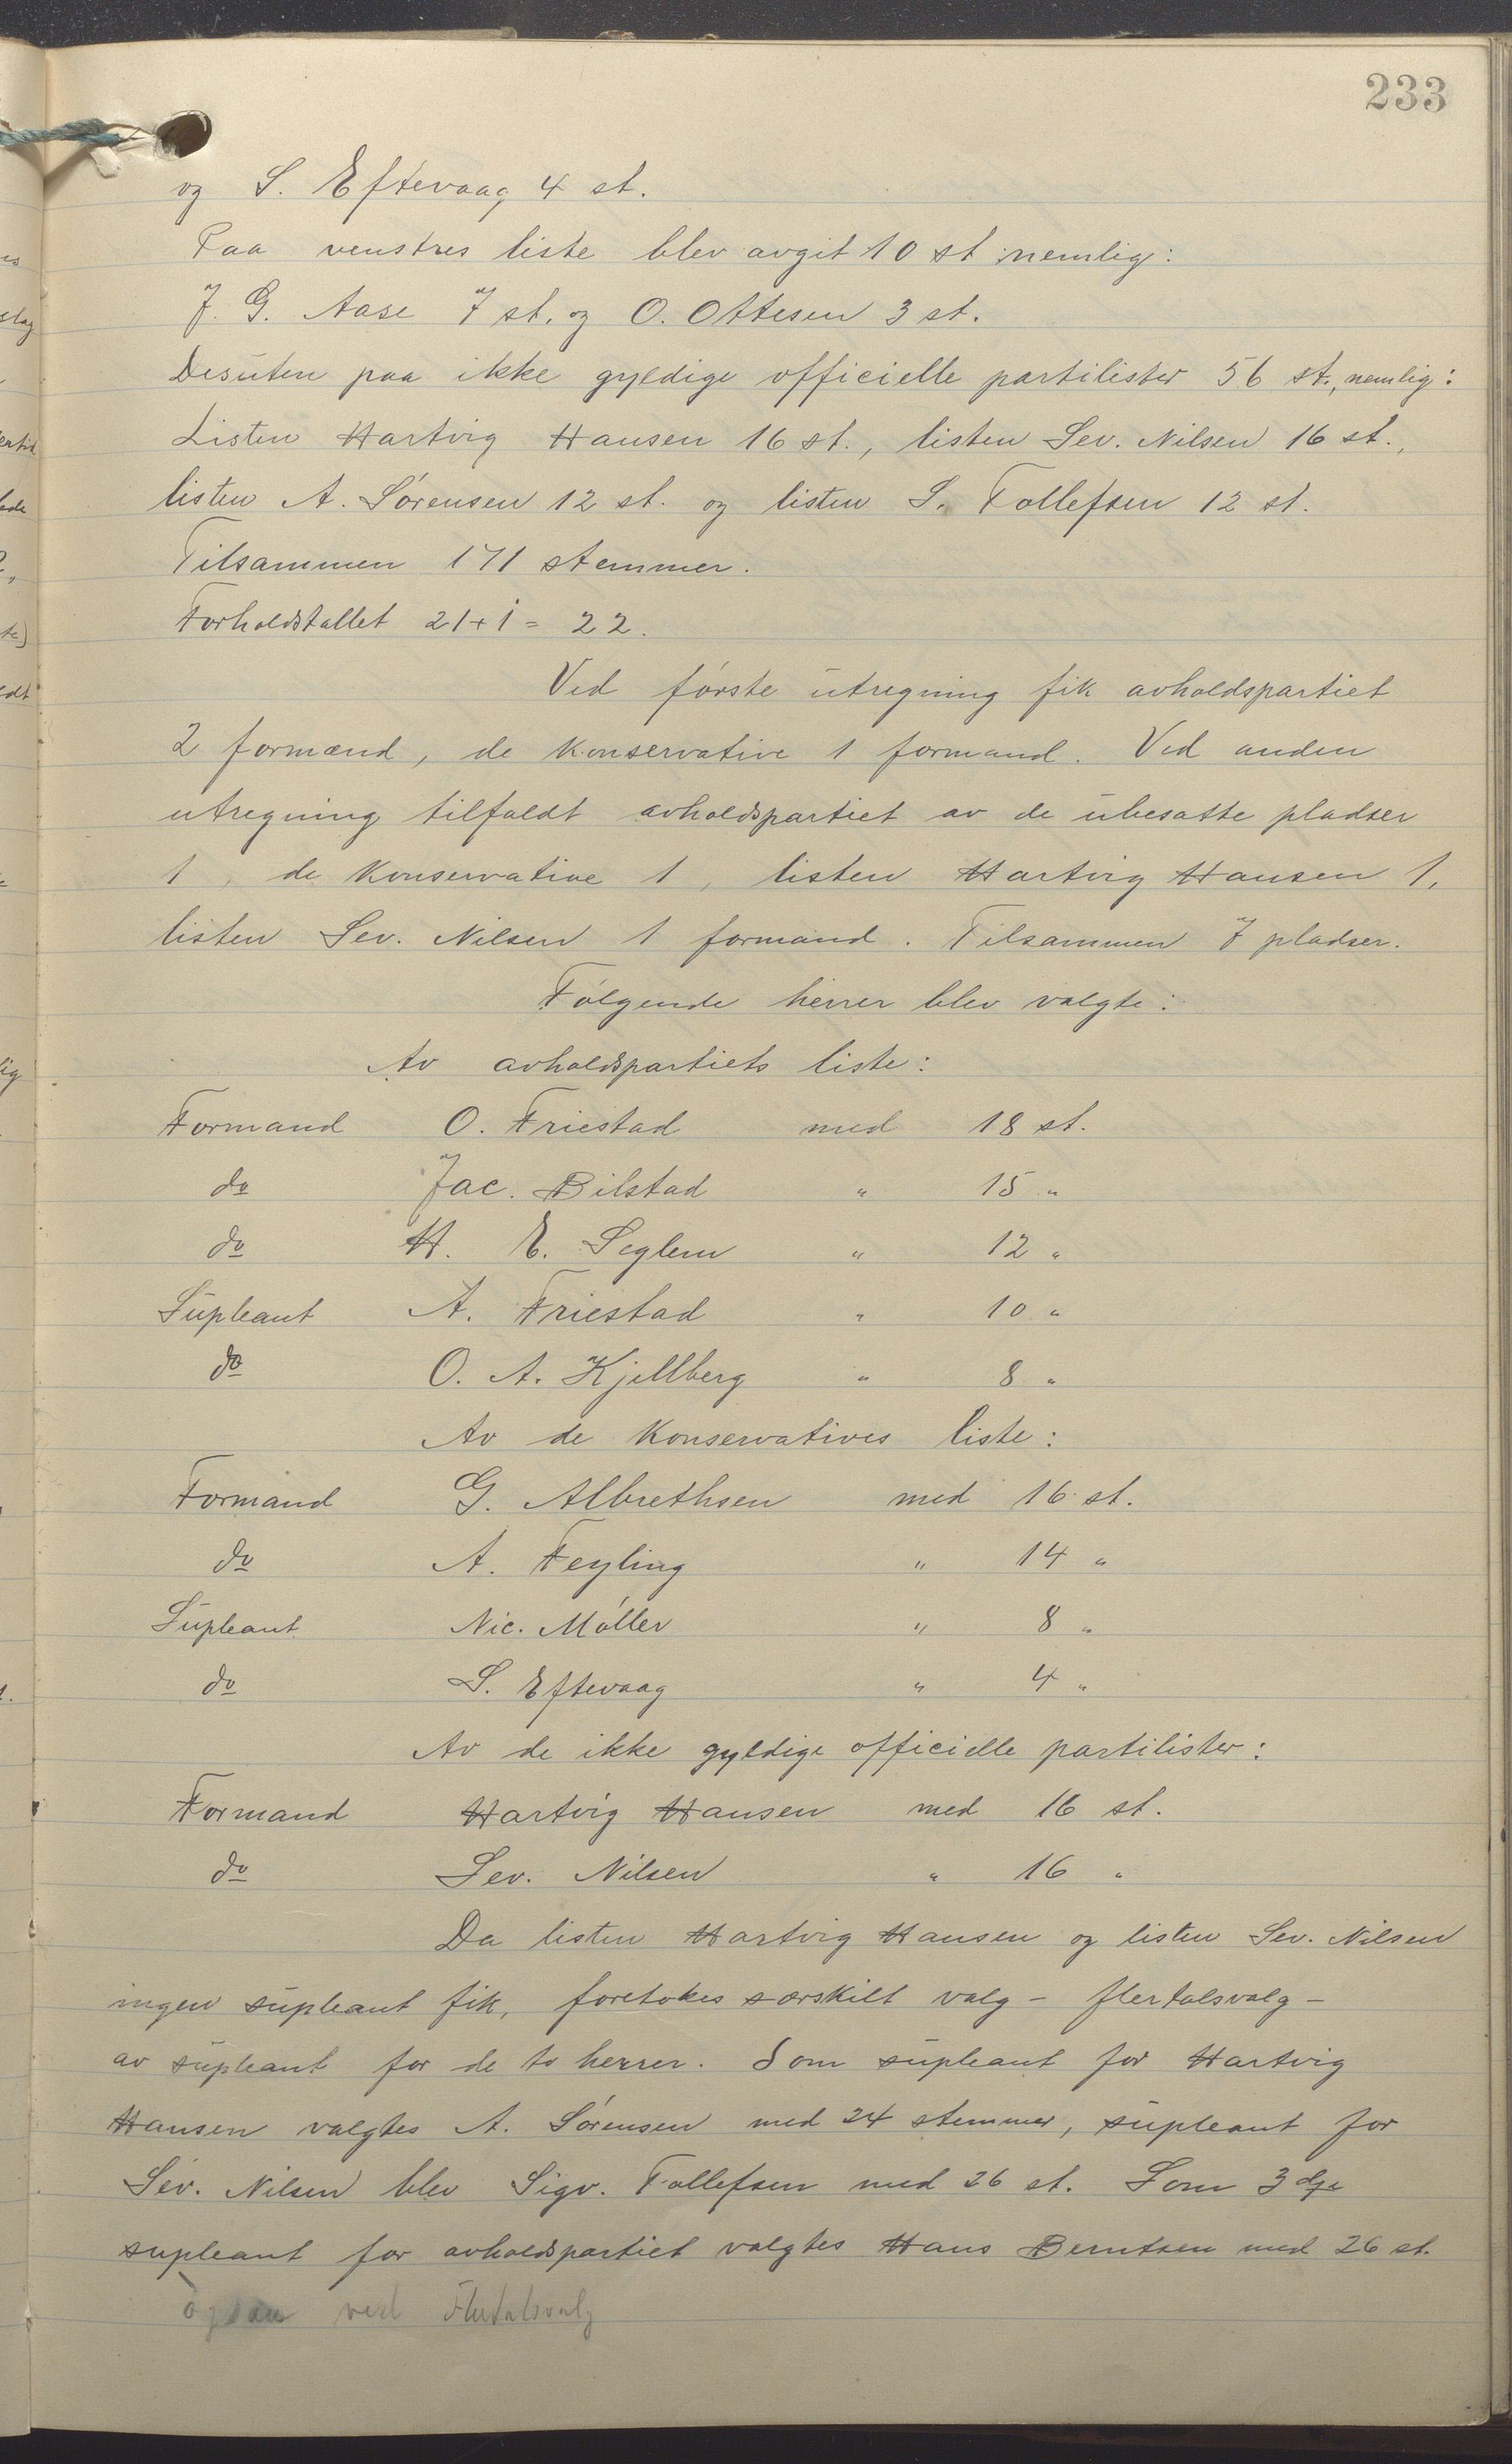 233
og S. Eftevaag 4 st.
Paa venstres liste blev avgit 10 st nemlig:
J. G. Aase 7 st. og O. Ottesen 3 st.
Desuten paa ikke gyldige officielle partilister 56 st., nemlig:
Listen Hartvig Hansen 16 st., listen Sev. Nilsen 16 st.,
listen A. Sørensen 12 st. og listen S. Tollefsen 12 st.
Tilsammen 171 stemmer.
Forholdstallet 21+1 = 22.
Ved første utregning fik avholdspartiet
2 formænd, de konservative 1 formand. Ved anden
utregning tilfaldt avholdspartiet av de ubesatte pladser
1, de konservative 1, listen Hartvig Hansen 1,
listen Sev. Nilsen 1 formand. Tilsammen 7 pladser.
Følgende herrer blev valgte:
Av avholdspartiets liste:
Formand O. Friestad med 18 st.
do Jac. Bilstad " 15 "
do H. E. Seglem " 12 "
Supleant A. Friestad " 10 "
do O. A. Kjellberg " 8 "
Av de konservatives liste:
Formand G. Albrethsen med 16 st.
do A. Feyling " 14 "
Supleant Nic. Møller " 8 "
do S. Eftevaag " 4 "
Av de ikke gyldige officielle partilister:
Formand Hartvig Hansen med 16 st.
do Sev. Nilsen " 16 "
Da listen Hartvig Hansen og listen Sev. Nilsen
ingen supleant fik, foretokes særskilt valg – flertalsvalg –
av supleant for de to herrer. Som supleant for Hartvig
Hansen valgtes A. Sørensen med 24 stemmer, supleant for
Sev. Nilsen blev Sigv. Tollefsen med 26 st. Som 3dje
supleant for avholdspartiet valgtes Hans Berntsen med 26 st.
ogsaa ved Flertalsvalg